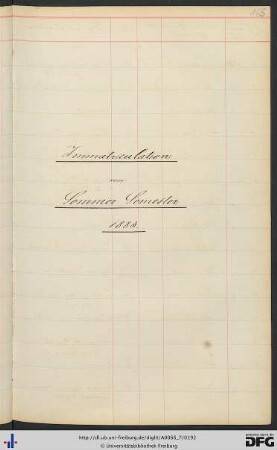 165
Immatriculation
vom
Sommer Semester
1888.
http://dl.ub.uni-freiburg.de/diglit/A0055_7/0192
© Universitätsbibliothek Freiburg
DFG